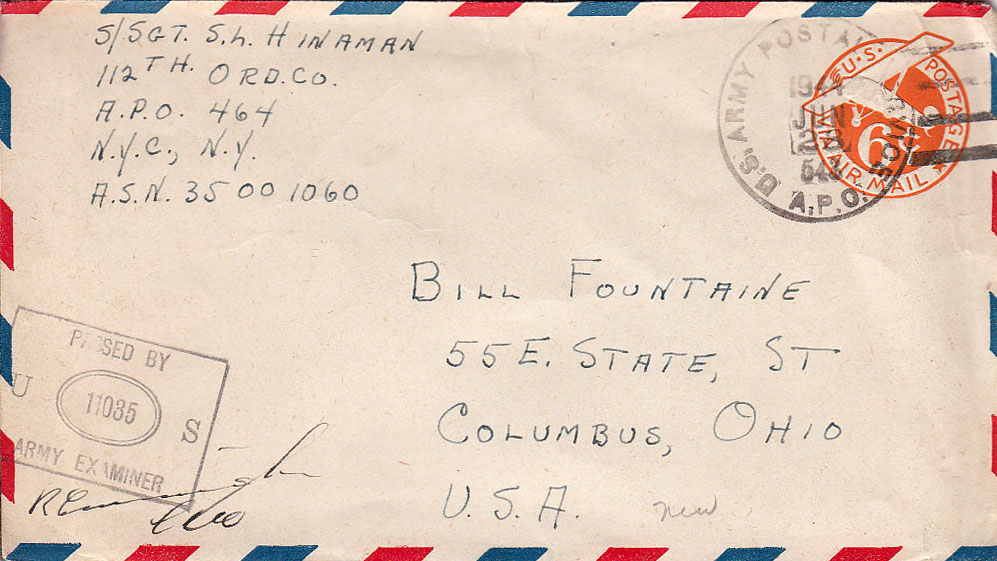 S/SGT. S.L. HINAMAN
112TH. ORD. CO.
A.P.O. 464
N.Y.C., N.Y.
A.S.N. 35001060
U.S. ARMY POSTAL SERVICE
1944
JUN
28
A.P.O.
U.S. POSTAGE
6¢
VIA AIR MAIL
BILL FOUNTAINE
55 E. STATE, ST
COLUMBUS, OHIO
U.S.A.
new
PASSED BY
U 11035 S
ARMY EXAMINER